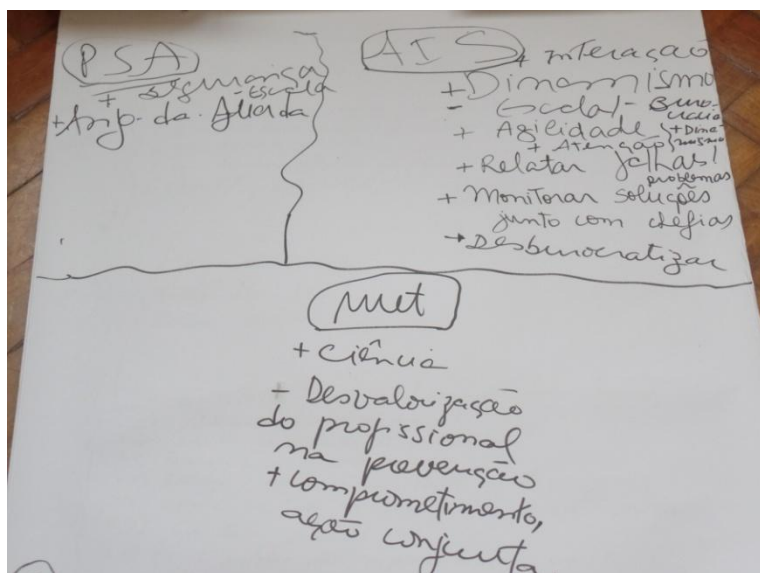 PSA
+ segurança
Escala
+ Arip. da. Alerda
AIS
+ interação
+ Dinamismo
- Escala/- Buro-
cracia
+ Agilidade + Dina-
+ Atenção mismo
+ Relatar falhas/
problemas
+ Monitorar soluções
junto com chefias
→ Desburocratizar
Met
+ Ciência
- Desvalorização
do profissional
na prevenção
+ comprometimento,
ação conjunta